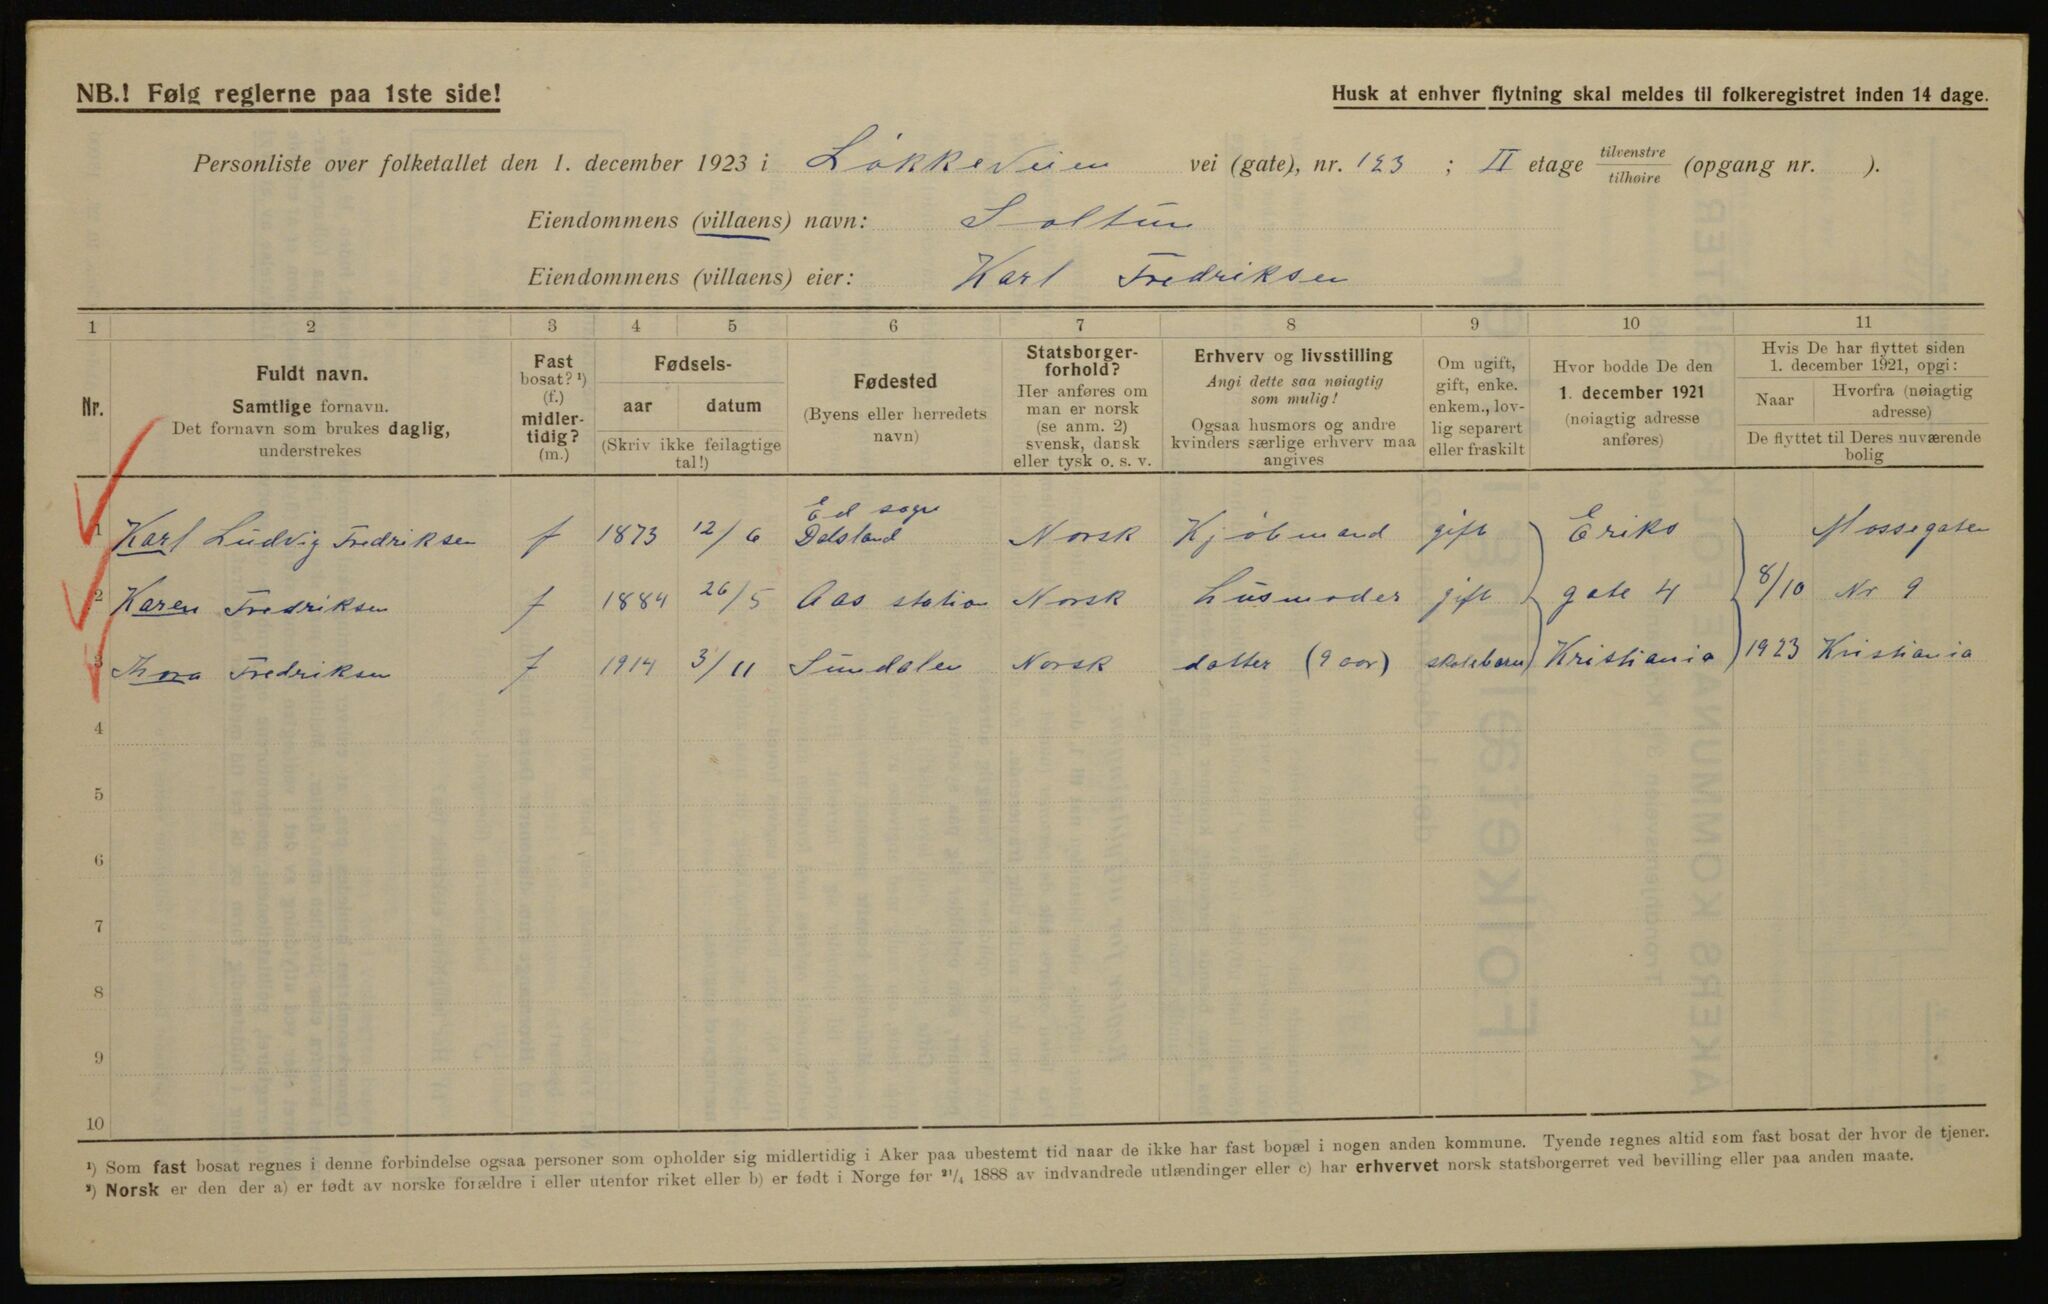 NB.! Følg reglerne paa 1ste side!
Husk at enhver flytning skal meldes til folkeregistret inden 14 dage.
Personliste over folketallet den 1. december 1923 i Løkkeveien vei (gate), nr. 123 ; II etage tilvenstre/tilhøire (opgang nr. ).
Eiendommens (villaens) navn: Soltun
Eiendommens (villaens) eier: Karl Fredriksen
1 2 3 4 5 6 7 8 9 10 11
Nr.
Fuldt navn.
Samtlige fornavn.
Det fornavn som brukes daglig,
understrekes
Fast
bosat? ¹)
(f.)
midler-
tidig?
(m.)
Fødsels-
aar datum
(Skriv ikke feilagtige
tal!)
Fødested
(Byens eller herredets
navn)
Statsborger-
forhold?
Her anføres om
man er norsk
(se anm. 2)
svensk, dansk
eller tysk o. s. v.
Erhverv og livsstilling
Angi dette saa nøiagtig
som mulig!
Ogsaa husmors og andre
kvinders særlige erhverv maa
angives
Om ugift,
gift, enke.
enkem., lov-
lig separert
eller fraskilt
Hvor bodde De den
1. december 1921
(nøiagtig adresse
anføres)
Hvis De har flyttet siden
1. december 1921, opgi:
Naar Hvorfra (nøiagtig
adresse)
De flyttet til Deres nuværende
bolig
1 Karl Ludvig Fredriksen f 1873 12/6 Ed sogn Dalsland Norsk Kjøbmand gift Eriks Mossegaten
2 Karen Fredriksen f 1884 26/5 Aas station Norsk Husmoder gift gate 4 8/10 Nr 9
3 Thora Fredriksen f 1914 3/11 Sundalen Norsk datter (9 aar) skolebarn Kristiania 1923 Kristiania
4
5
6
7
8
9
10
¹) Som fast bosat regnes i denne forbindelse ogsaa personer som opholder sig midlertidig i Aker paa ubestemt tid naar de ikke har fast bopæl i nogen anden kommune. Tyende regnes altid som fast bosat der hvor de tjener.
²) Norsk er den der a) er født av norske forældre i eller utenfor riket eller b) er født i Norge før ²¹/₄ 1888 av indvandrede utlændinger eller c) har erhvervet norsk statsborgerret ved bevilling eller paa anden maate.